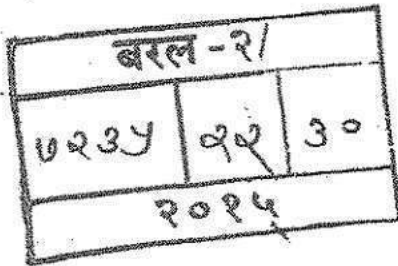 बरल - २/
७२३५ २२ ३०
२०१५